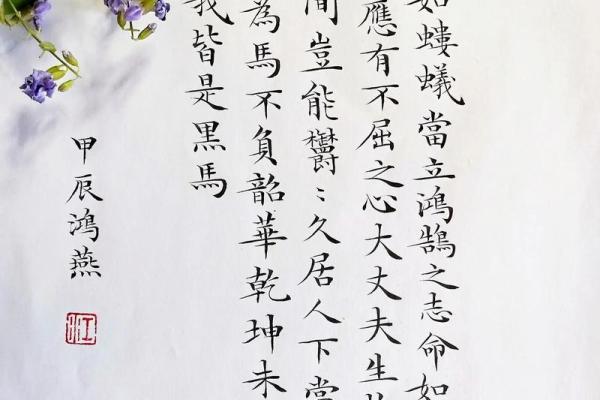 如螻蟻當立鴻鵠之志命如
應有不屈之心大丈夫生
間豈能鬱〻久居人下當
為馬不負韶華乾坤未
我皆是黑馬
甲辰鴻燕